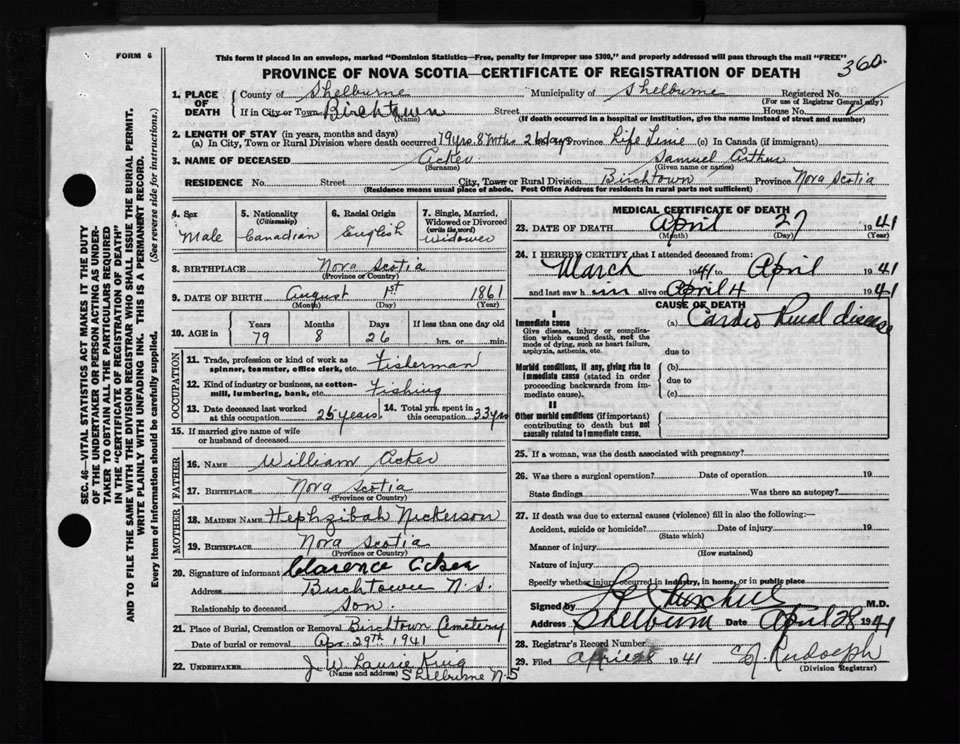 FORM 6
This form if placed in an envelope, marked "Dominion Statistics—Free, penalty for improper use $300," and properly addressed will pass through the mail "FREE"
360.
PROVINCE OF NOVA SCOTIA—CERTIFICATE OF REGISTRATION OF DEATH
SEC. 46—VITAL STATISTICS ACT MAKES IT THE DUTY
OF THE UNDERTAKER OR PERSON ACTING AS UNDER-
TAKER TO OBTAIN ALL THE PARTICULARS REQUIRED
IN THE "CERTIFICATE OF REGISTRATION OF DEATH"
AND TO FILE THE SAME WITH THE DIVISION REGISTRAR WHO SHALL ISSUE THE BURIAL PERMIT.
WRITE PLAINLY WITH UNFADING INK. THIS IS A PERMANENT RECORD.
Every item of information should be carefully supplied. (See reverse side for instructions.)
1. PLACE OF DEATH
County of Shelburne Municipality of Shelburne Registered No.
(For use of Registrar General only)
If in City or Town Birchtown Street House No.
(Name) (If death occurred in a hospital or institution, give the name instead of street and number)
2. LENGTH OF STAY (in years, months and days)
(a) In City, Town or Rural Division where death occurred 79 yrs. 8 Mths 26 days Province Life Time (c) In Canada (if immigrant)
3. NAME OF DECEASED Acker Samuel Arthur
(Surname) (Given name or names)
RESIDENCE No. Street City, Town or Rural Division Birchtown Province Nova Scotia
(Residence means usual place of abode. Post Office Address for residents in rural parts not sufficient)
4. Sex
Male
5. Nationality
(Citizenship)
Canadian
6. Racial Origin
English
7. Single, Married,
Widowed or Divorced
(write the word)
Widower
8. BIRTHPLACE Nova Scotia
(Province or Country)
9. DATE OF BIRTH August 1st 1861
(Month) (Day) (Year)
10. AGE in
Years Months Days If less than one day old
79 8 26 hrs. or min.
OCCUPATION
11. Trade, profession or kind of work as
spinner, teamster, office clerk, etc. Fisherman
12. Kind of industry or business, as cotton-
mill, lumbering, bank, etc. Fishing
13. Date deceased last worked
at this occupation 25 years
14. Total yrs. spent in
this occupation 33 yrs
15. If married give name of wife
or husband of deceased
FATHER
16. NAME William Acker
17. BIRTHPLACE Nova Scotia
(Province or Country)
MOTHER
18. MAIDEN NAME Hephzibah Nickerson
19. BIRTHPLACE Nova Scotia
(Province or Country)
20. Signature of informant Clarence Acker
Address Birchtown N.S.
Relationship to deceased Son.
21. Place of Burial, Cremation or Removal Birchtown Cemetery
Date of burial or removal Apr. 29th 1941
22. UNDERTAKER J. W. Laurie King
(Name and address) Shelburne N.S
MEDICAL CERTIFICATE OF DEATH
23. DATE OF DEATH April 27 1941
(Month) (Day) (Year)
24. I HEREBY CERTIFY that I attended deceased from:
March 1941 to April 1941
and last saw h im alive on April 4 1941
CAUSE OF DEATH
I
Immediate cause
Give disease, injury or complica-
tion which caused death, not the
mode of dying, such as heart failure,
asphyxia, asthenia, etc.
(a) Cardio Renal disease
due to
Morbid conditions, if any, giving rise to
immediate cause (stated in order
proceeding backwards from im-
mediate cause).
(b)
due to
(c)
II
Other morbid conditions (if important)
contributing to death but not
causally related to immediate cause.
25. If a woman, was the death associated with pregnancy?
26. Was there a surgical operation? Date of operation 19
State findings Was there an autopsy?
27. If death was due to external causes (violence) fill in also the following:—
Accident, suicide or homicide? Date of injury 19
(State which)
Manner of injury
(How sustained)
Nature of injury
Specify whether injury occurred in industry, in home, or in public place
Signed by Churchill M.D.
Address Shelburne Date April 28 1941
28. Registrar's Record Number
29. Filed April 28 1941 Rudolph
(Division Registrar)